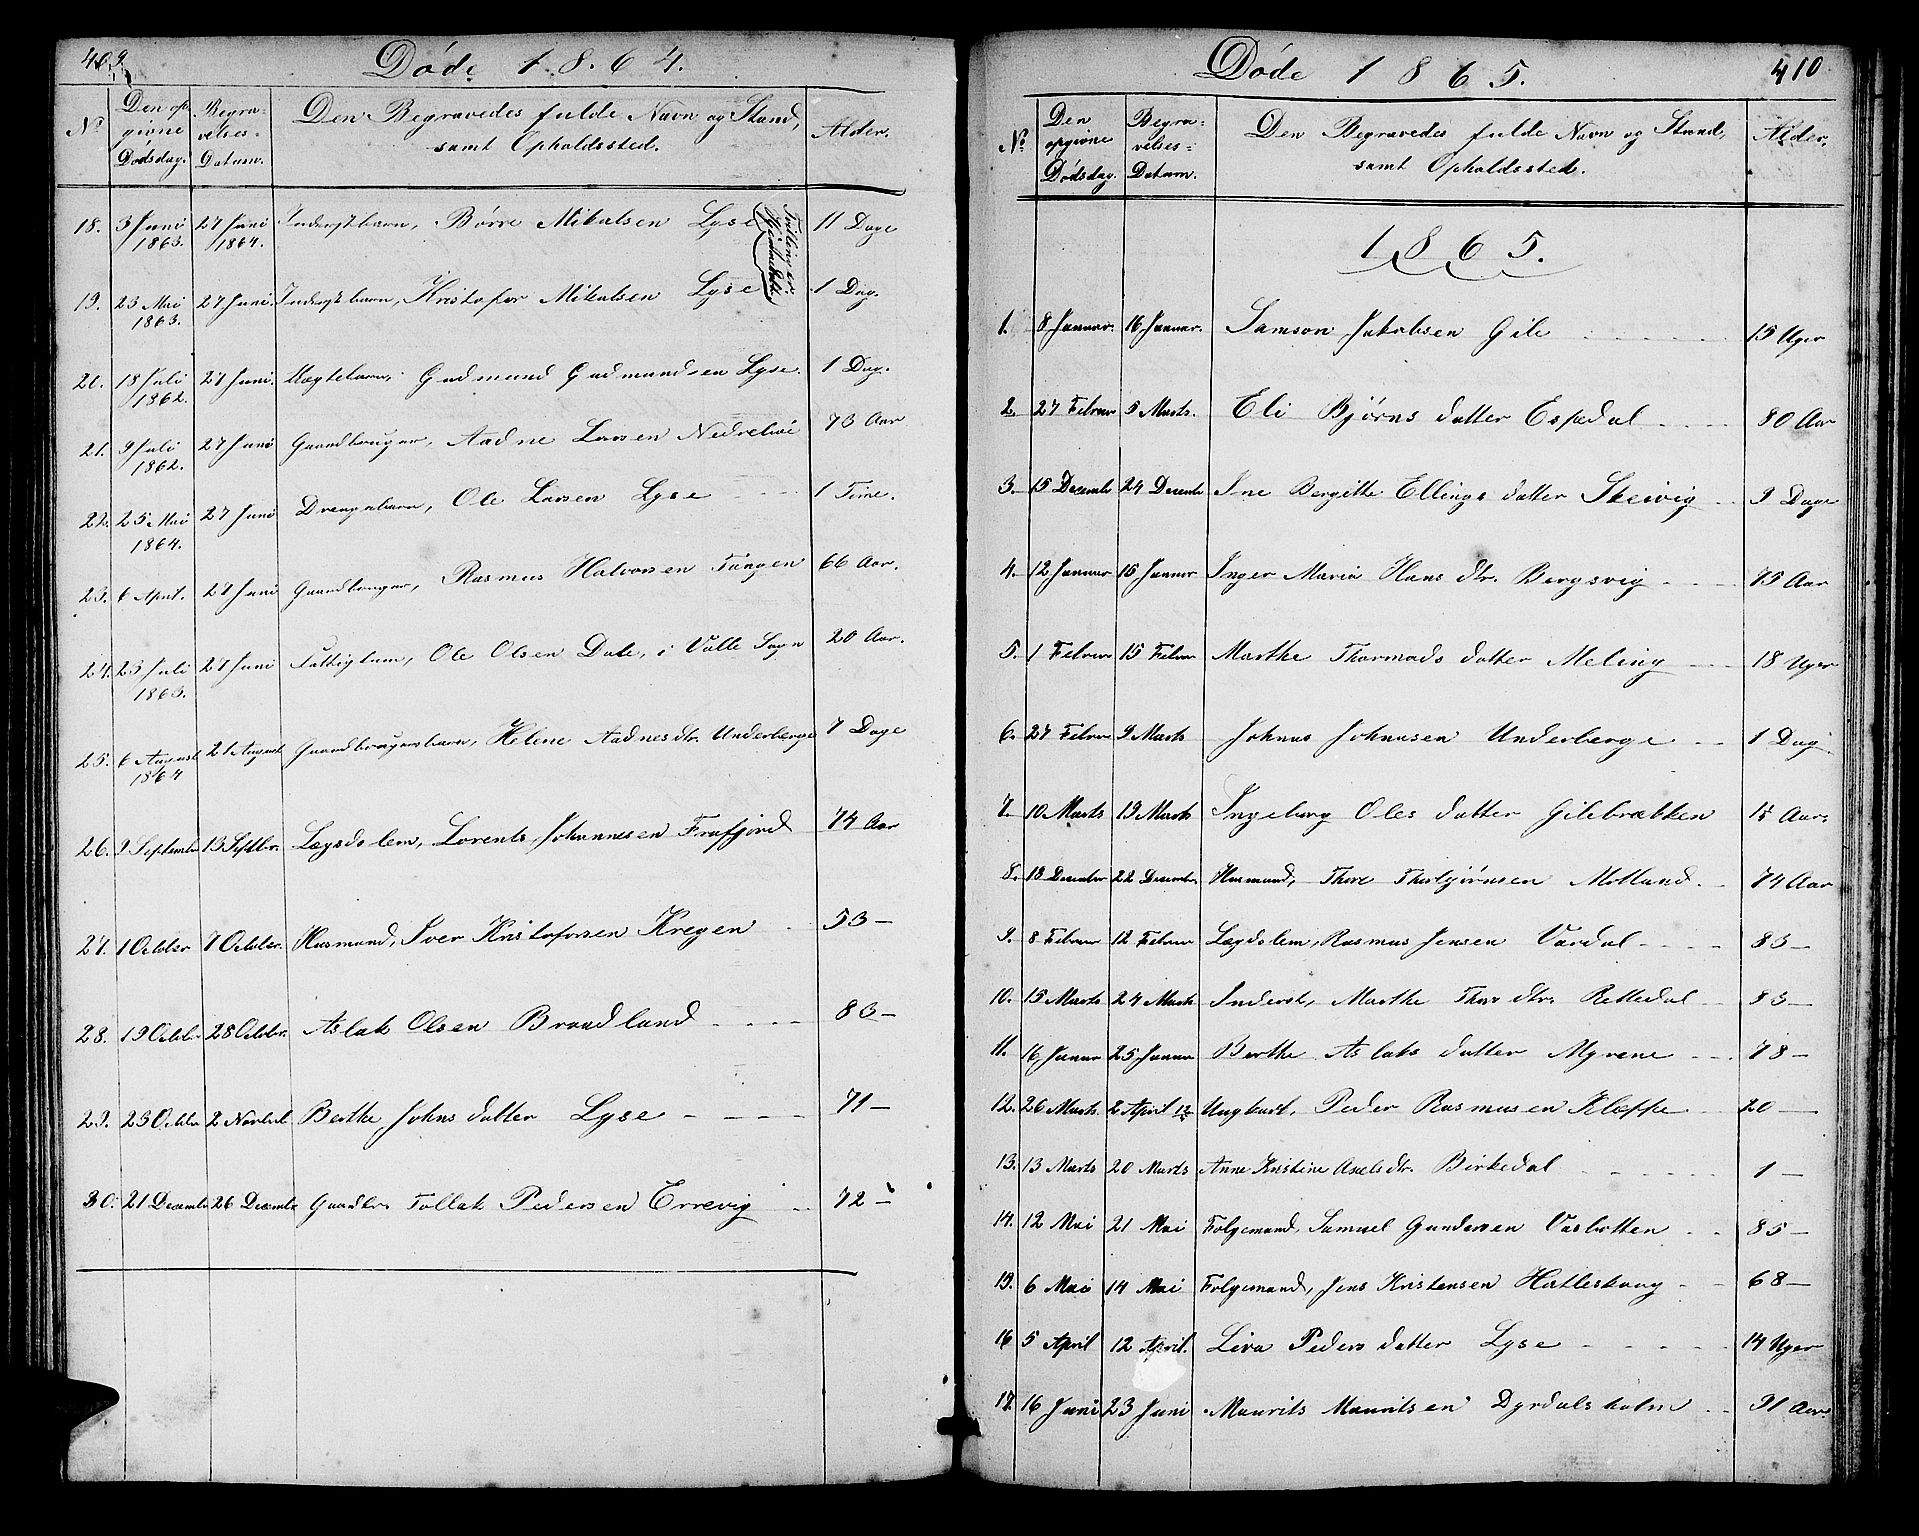 409
Døde 1864.
No
Den opgivne Dødsdag.
Begravelses-Datum.
Den Begravedes fulde Navn og Stand, samt Opholdssted.
Alder.
18. 3 Juni 1863. 27 Juni 1864. Inderstbarn, Børre Mikalsen Lyse 11 Dage
19. 23 Mai 1863. 27 Juni. Inderstbarn, Kristofer Mikalsen Lyse 1 Dag.
Tvillinger
20. 18 Juli 1862. 27 Juni. Lægtebarn, Gudmund Gudmundsen Lyse. 1 Dag.
21. 9 Juli 1862. 27 Juni Gaardbruger, Aadne Larsen Nedrebøe 73 Aar
22. 25 Mai 1864. 27 Juni Drengebarn, Ole Larsen Lyse 1 Time.
23. 6 April. 27 Juni Gaardbruger, Rasmus Halvorsen Tungen 66 Aar.
24. 23 Juli 1863. 27 Juni Fattiglem, Ole Olsen Dale, i Valle Sogn 20 Aar.
25. 6 August 1864 21 August Gaardbrugersbarn, Helene Aadnesdtr. Underberge 7 Dage
26. 9 September 13 Septbr. Lægdslem, Lorents Johannesen Frafjord 74 Aar
27. 1 October 7 October. Husmand, Iver Kristofersen Kregen 53 —
28. 19 October 28 October. Aslak Olsen Brandland 83 —
29. 23 October 2 Novbr Berthe Johnsdatter Lyse 71 —
30. 21 December 26 December Gaardbr. Tollak Pedersen Errevig 72 —
Døde 1865.
410
No
Den opgivne Dødsdag.
Begravelses-Datum.
Den Begravedes fulde Navn og Stand, samt Opholdssted.
Alder.
1865.
1. 8 Januar. 16 Januar. Samson Jakobsen Gile 15 Uger
2. 27 Februar 5 Marts. Eli Bjørnsdatter Espedal 80 Aar
3. 15 December 24 December Ine Bergitte Ellingsdatter Skeivig 9 Dage
4. 12 Januar 15 Januar Inger Maria Hansdtr. Bergsvig 75 Aar
5. 1 Februar 15 Februar Marthe Thormodsdatter Meling 18 Uger
6. 27 Februar 9 Marts Johnas Johnasen Underberge 1 Dag
7. 10 Marts 19 Marts Ingeborg Olesdatter Gilebrækken 15 Aar
8. 13 December 22 December. Husmand, Thore Thorbjørnsen Molland 74 Aar
9. 8 Februar 12 Februar Lægdslem, Rasmus Jensen Vardal 83 —
10. 15 Marts 24 Marts Inderst, Marthe Thordtr. Rettedal 83 —
11. 16 Januar 25 Januar Berthe Aslaksdatter Myrene 78 —
12. 26 Marts 2 April Ungkarl, Peder Rasmusen Kleppe 20 —
13. 13 Marts 20 Marts Anne Kristine Axelsdtr. Birkedal 1 —
14. 12 Mai 21 Mai Folgemand, Samuel Gundersen Vasbotten 85 —
15. 6 Mai 14 Mai Folgemand, Jens Kristensen Hatleskaag 68 —
16 5 April 12 April. Liva Pedersdatter Lyse 14 Uger
17. 16 Juni 23 Juni Maurits Mauritsen Dyrdalsholm 91 Aar